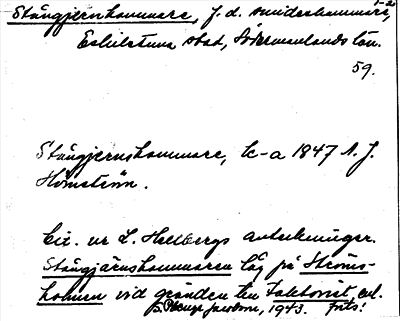 Stångjernshammare, f.d. smideshammare,
Eskilstuna stad, Södermanlands län.
59.
Stångjernshammare, k-a 1847 A. J.
Hörnsteén.
Cit. ur L. Hellbergs anteckningar.
Stångjärnshammaren låg på Ströms-
holmen vid gränden ten Faktoriet enl.
Jacobson, 1943.